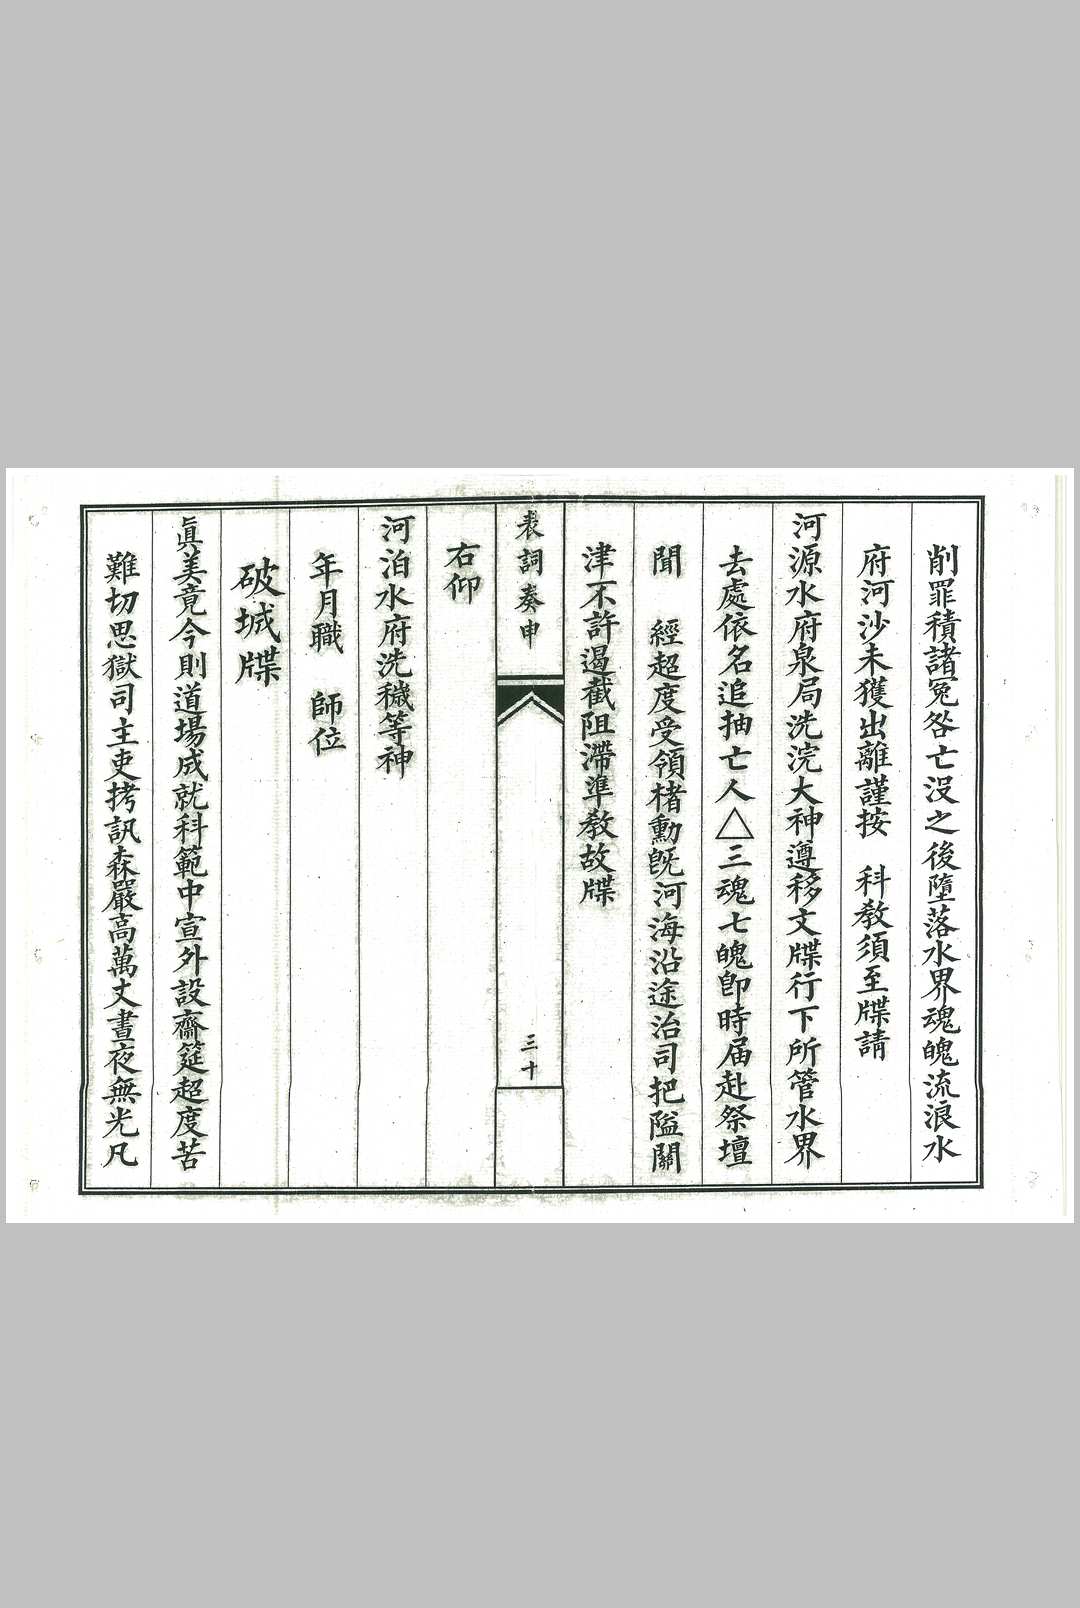 削罪積諸冤咎亡沒之後墮落水界魂魄流浪水
府河沙未獲出離謹按　科教須至牒請
河源水府泉局洗浣大神遵移文牒行下所管水界
去處依名追抽亡人△三魂七魄卽時届赴祭壇
聞　經超度受領楮勳旣河海沿途治司把隘關
津不許遏截阻滯準教故牒
表詞奏申
三十
右仰
河泊水府洗穢等神
年月職　師位
破城牒
眞美竟今則道場成就科範中宣外設齋筵超度苦
難切思獄司主吏拷訊森嚴高萬丈晝夜無光凡